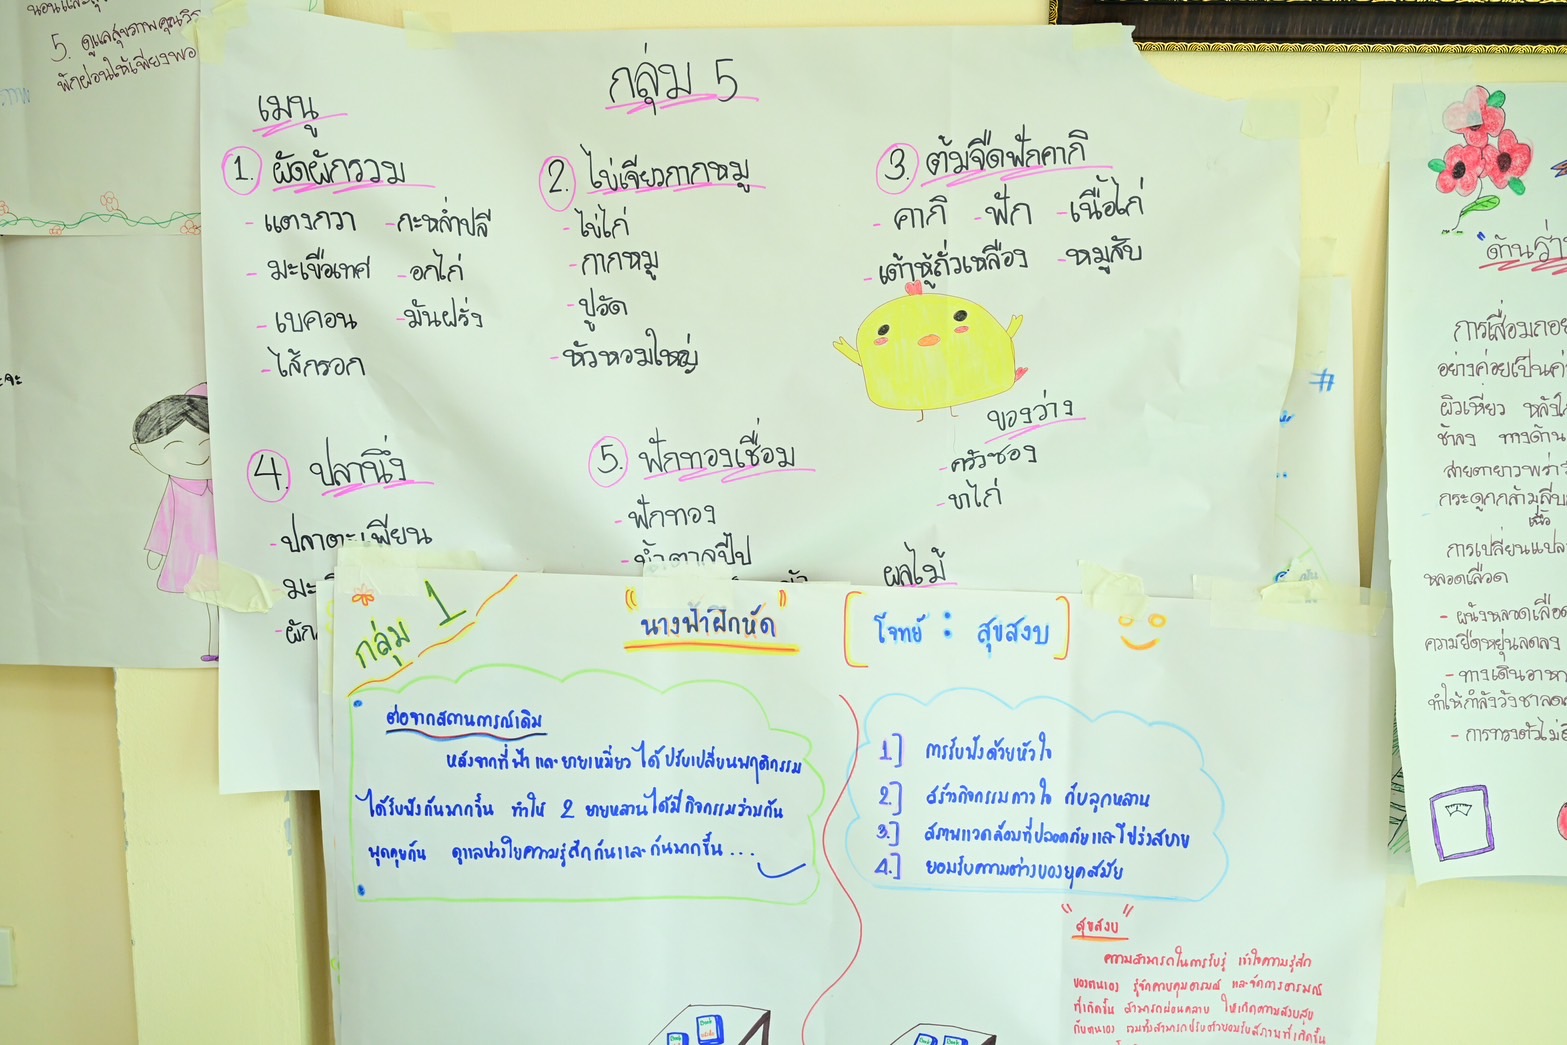 5. ดูแลสุขภาพคุณ
พักผ่อนให้เพียงพอ
กลุ่ม 5
เมนู
1. ผัดผักรวม
- แตงกวา - กะหล่ำปลี
- มะเขือเทศ - อกไก่
- เบคอน - มันฝรั่ง
- ไส้กรอก
2. ไข่เจียวกากหมู
- ไข่ไก่
- กากหมู
- ปูวัด
- หัวหอมใหญ่
3. ต้มจืดฟักคากิ
- คากิ - ฟัก - เนื้อไก่
- เต้าหู้ถั่วเหลือง - หมูสับ
ของว่าง
- ครัวซอง
- ขาไก่
4. ปลานึ่ง
- ปลาตะเพียน
- มะ
- ผัก
5. ฟักทองเชื่อม
- ฟักทอง
- น้ำตาลปี๊ป
ผลไม้
กลุ่ม 1
"นางฟ้าฝึกหัด"
[โจทย์ : สุขสงบ]
ต่อจากสถานการณ์เดิม
หลังจากที่ฟ้าและยายเหมี่ยวได้ปรับเปลี่ยนพฤติกรรม
ได้รับฟังกันมากขึ้น ทำให้ 2 ยายหลานได้มีกิจกรรมร่วมกัน
พูดคุยกัน ดูแลห่วงใยความรู้สึกกันและกันมากขึ้น...
1.] การรับฟังด้วยหัวใจ
2.] สร้างกิจกรรมทางใจ กับลูกหลาน
3.] สภาพแวดล้อมที่ปลอดภัยและโปร่งสบาย
4.] ยอมรับความต่างของยุคสมัย
"สุขสงบ"
ความสามารถในการรับรู้ เข้าใจความรู้สึก
ของตนเอง รู้จักควบคุมอารมณ์ และจัดการอารมณ์
ที่เกิดขึ้น สามารถผ่อนคลาย ให้เกิดความสงบสุข
กับตนเอง รวมทั้งสามารถปรับตัวยอมรับสภาพที่เกิดขึ้น
"ด้านร่า
การเสื่อมถอย
อย่างค่อยเป็นค่
ผิวเหี่ยว หลัง
ช้าลง ทางด้าน
สายตายาวพร่า
กระดูกกล้าม
เนื้อ
การเปลี่ยนแปล
หลอดเลือด
- ผนังหลอดเลือด
ความยืดหยุ่นลดลง
- ทางเดินอาห
ทำให้กำลังวังชาลด
- การทรงตัวไม่
#